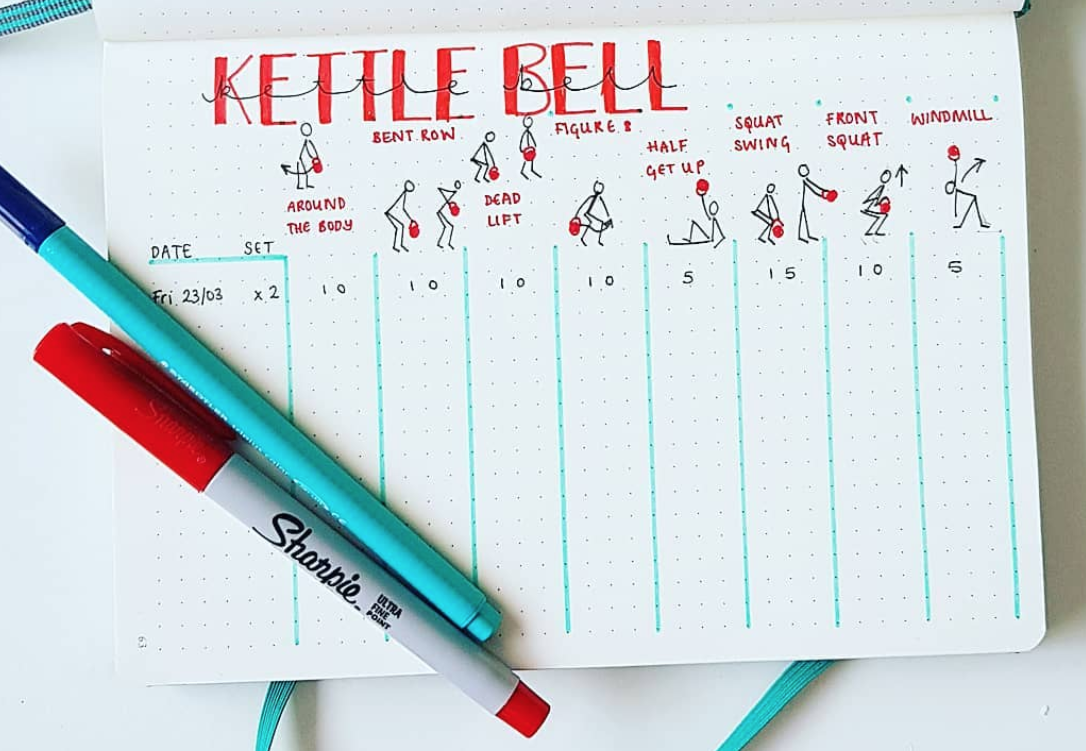 KETTLE BELL
kettle bell
BENT ROW
FIGURE 8
SQUAT
SWING
FRONT
SQUAT
WINDMILL
HALF
GET UP
AROUND
THE BODY
DEAD
LIFT
DATE SET
Fri 23/03 x2 10 10 10 10 5 15 10 5
Sharpie
Sharpie
ULTRA
FINE
POINT
63